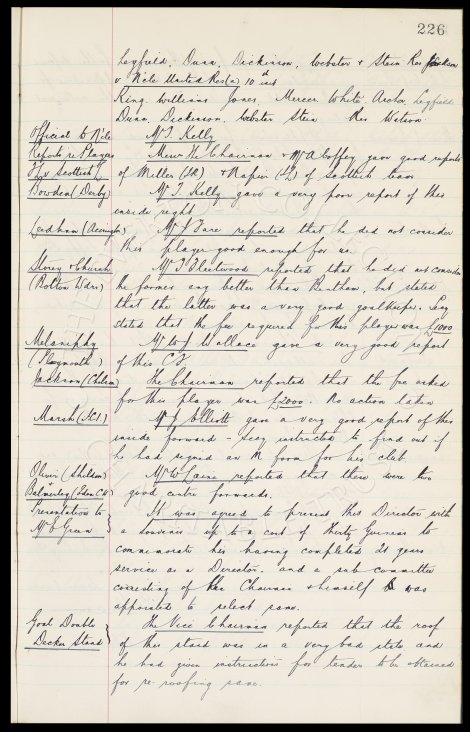 226
Leyfield, Dunn, Dickinson, Webster & Stein Res Jackson
v Nele United Res(a) 10th inst
King Williams Jones, Mercer White Archer Leyfield
Dunn, Dickinson, Webster Stein Res Watson
Official to Nele Mr T. Kelly
Reports re Players Messrs The Chairman & Mr A Coffey gave good reports
of Miller (IR) & Napier (IL) of Scottish team
Bowden (Derby) Mr T. Kelly gave a very poor report of this
inside right
Leadham (Accrington) Mr J Fare reported that he did not consider
this player good enough for us
Storey & Church Mr T Fleetwood reported that he did not consider
(Bolton Wdrs) the former any better than Burtham, but stated
that the latter was a very good goalkeeper. Secy
stated that the fee required for this player was £1000
Melaniphy Mr W J Wallace gave a very good report
(Plymouth) of this C.F
Jackson (Chelsea) The Chairman reported that the fee asked
for this player was £2000. No action taken
Marsh Mr J Elliott gave a very good report of this
inside forward - Secy instructed to find out if
he had signed an N form for his club
Oliver (Shildon) Mr W Laine reported that there were two
& Balmerley (Eden C.W) good centre forwards.
Presentation to It was agreed to present this Director with
Mr E Green a souvenir up to a cost of Thirty Guineas to
commemorate his having completed 21 years
service as a Director. and a sub committee
consisting of the Chairman & himself was
appointed to select same.
Goal Double The Vice Chairman reported that the roof
Decker Stand of this stand was in a very bad state and
he had given instructions for tenders to be obtained
for re-roofing same.